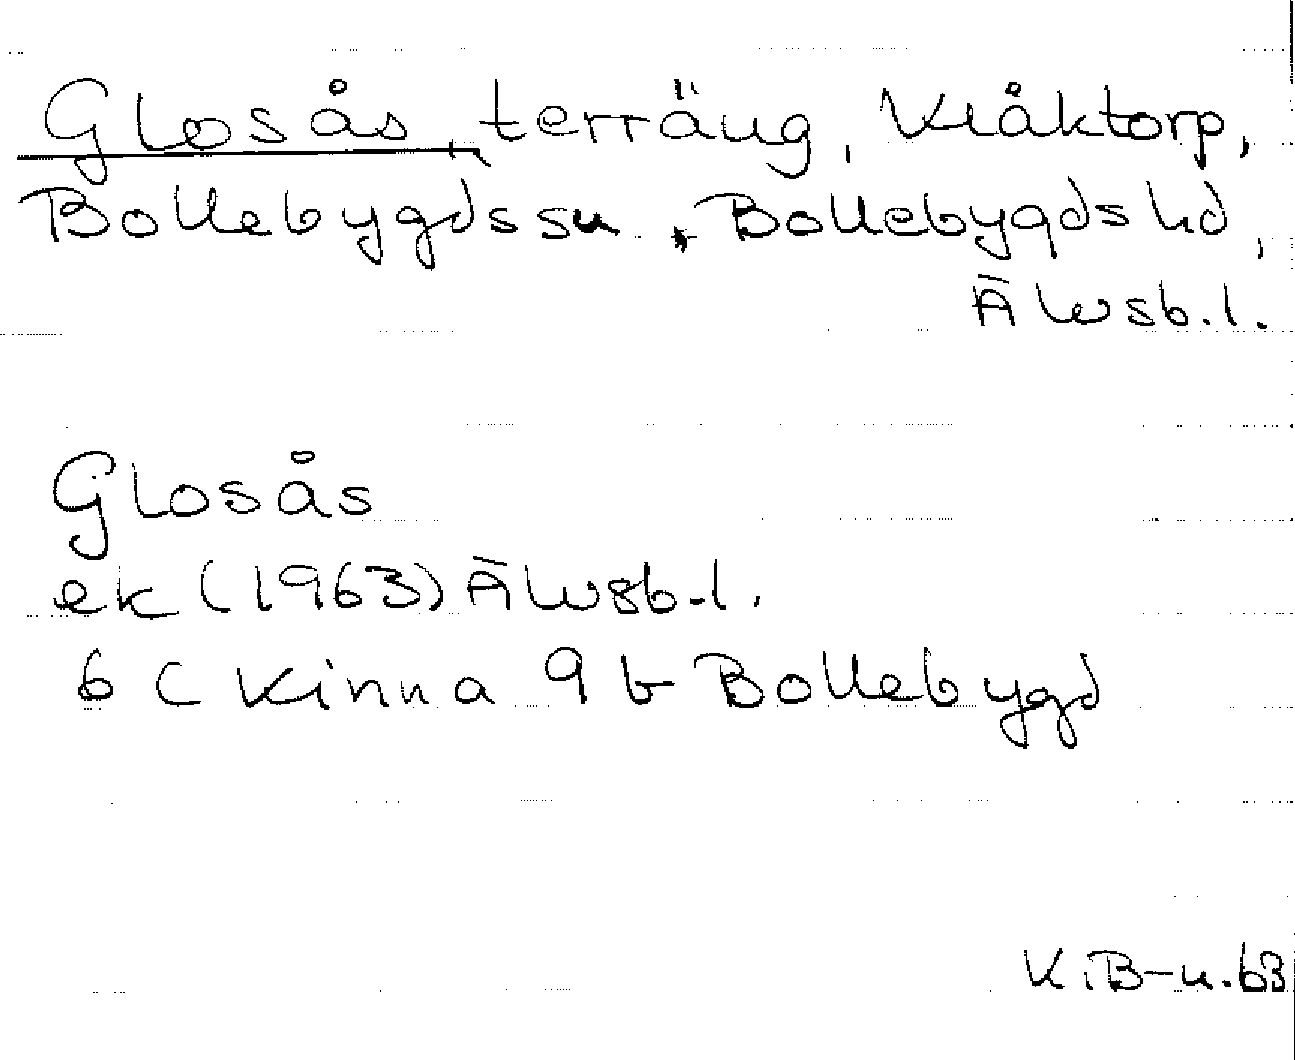 Glosås, terräng, Kråktorp,
Bollebygdssn, Bollebygdshd,
Älvsb.l.
Glosås
ek (1963) Älvsb.l.
6 C Kinna 9 b Bollebygd
K.B-n. 63